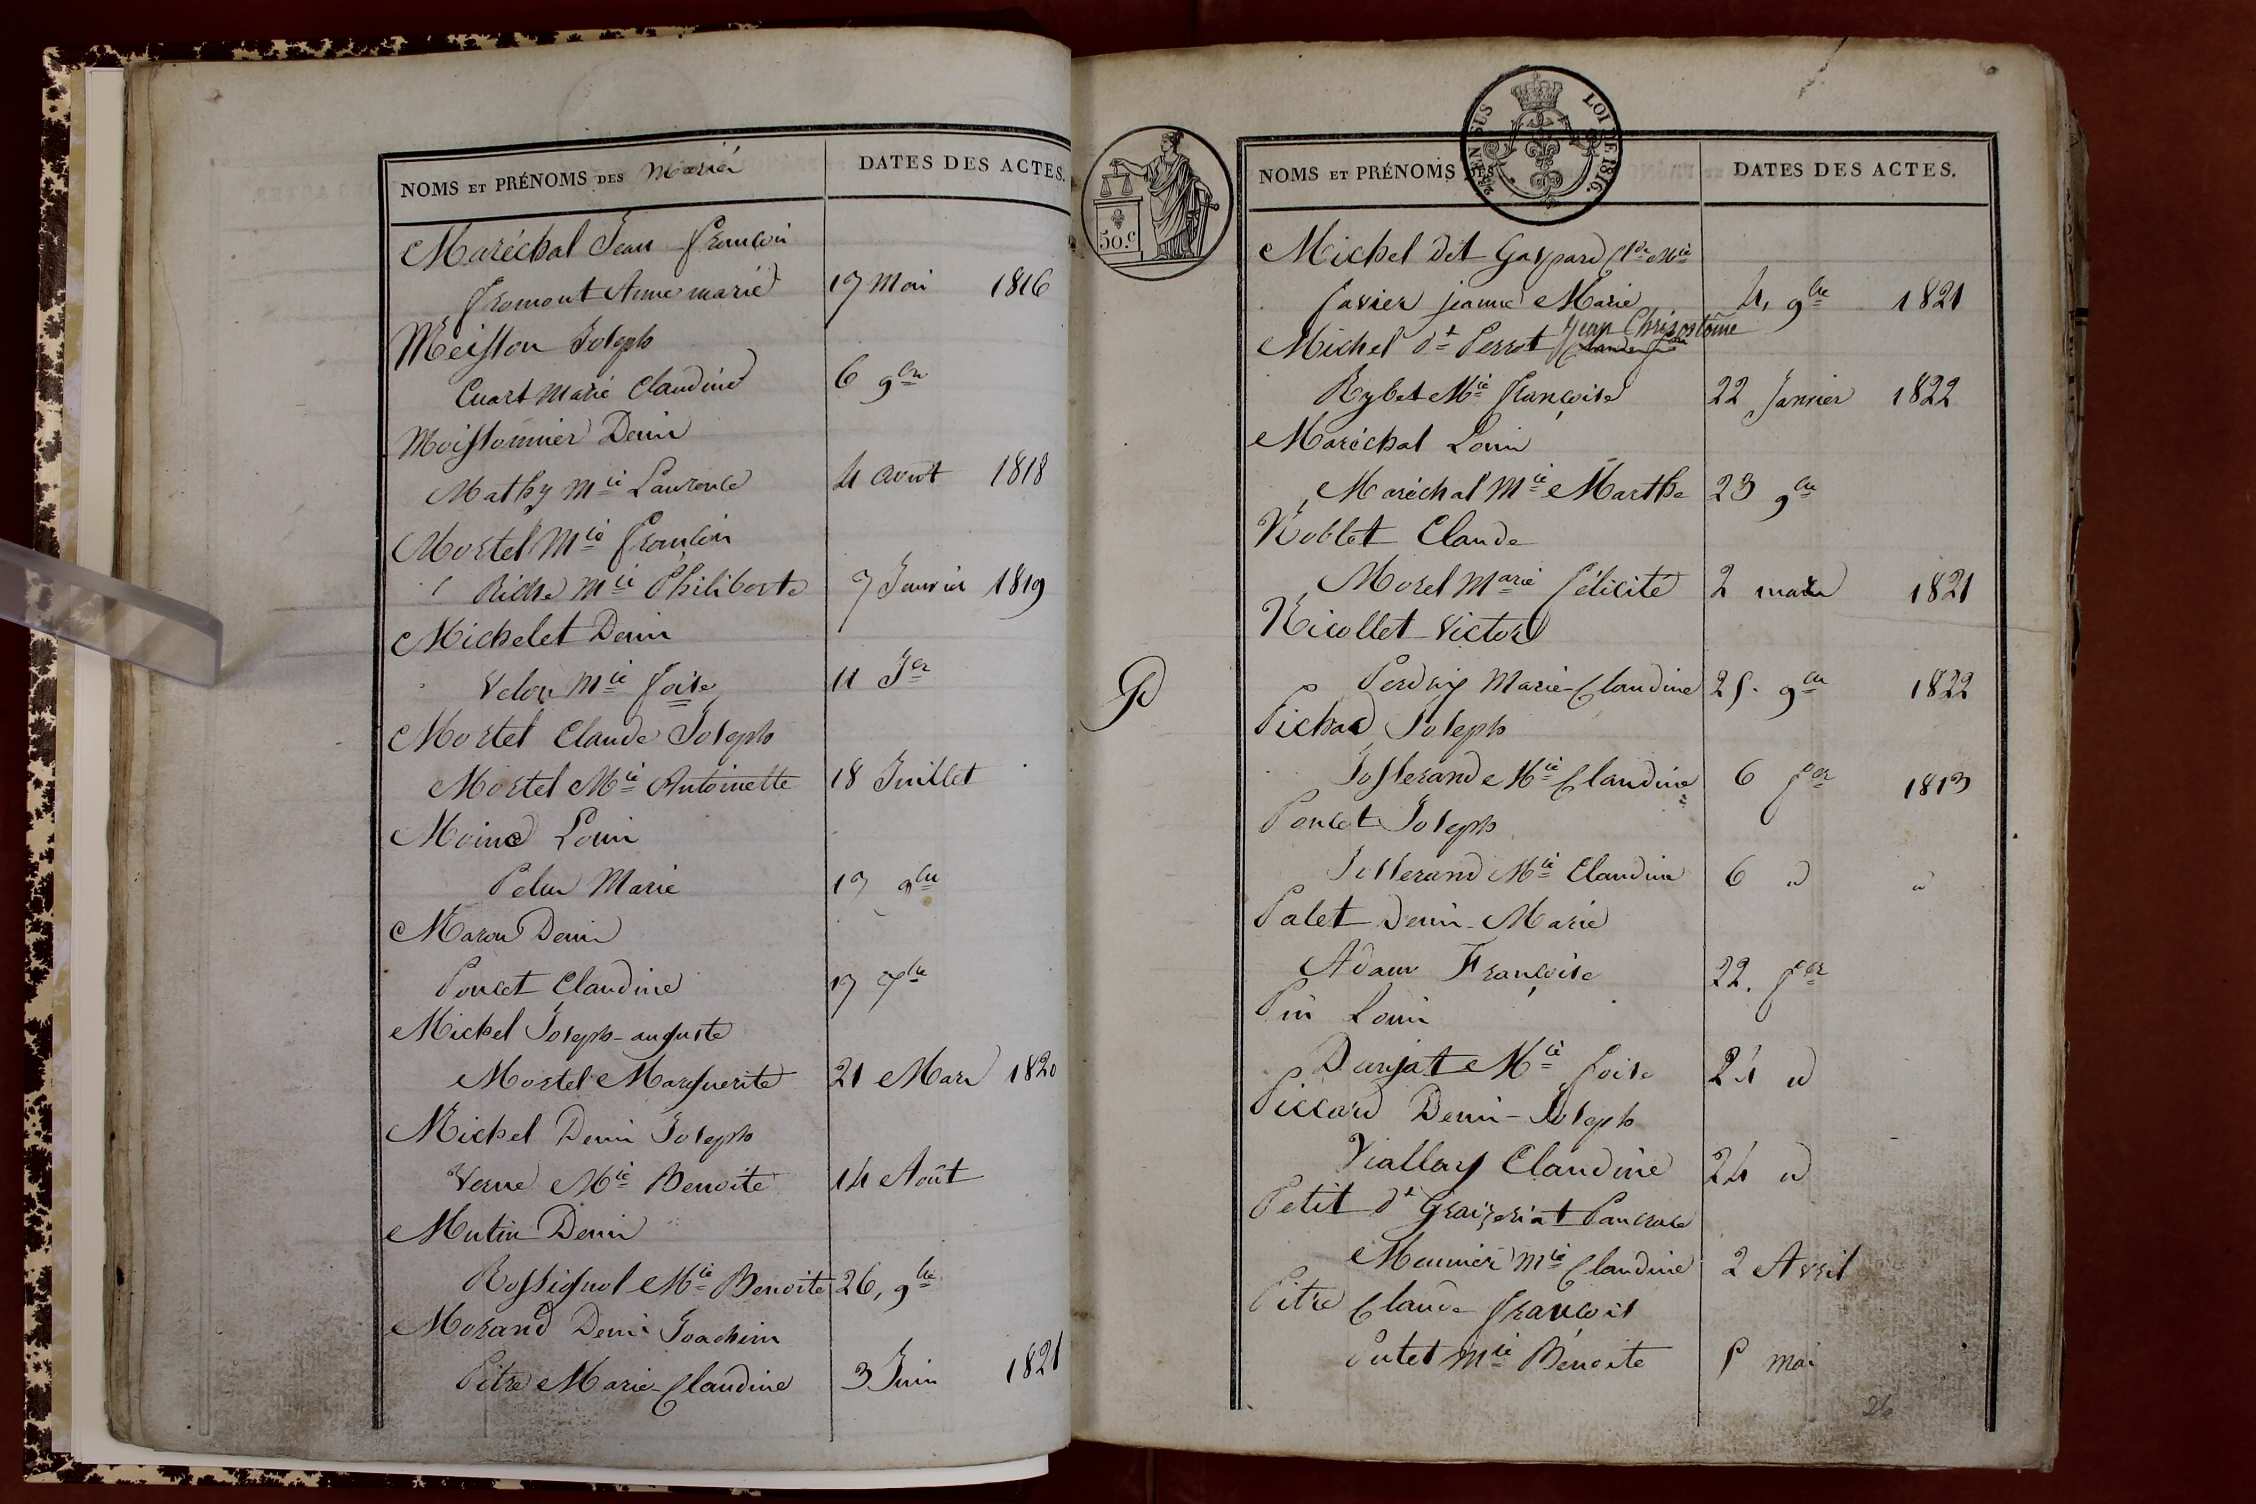 NOMS ET PRÉNOMS DES Mariés
DATES DES ACTES.
Maréchal Jean françois
fromont Anne marie 17 Mai 1816
Meisson Joseph
Cuart Marie Claudine 6 9bre
Moissonnier Denis
Mathy Mie Laurence 4 avril 1818
Mortel Mie françois
Riche Mie Philiberte 7 Janvier 1819
Michelet Denis
Velon Mie foise 11 Jer
Mortel Claude Joseph
Mortel Mie Antoinette 18 Juillet
Moine Louis
Pelus Marie 17 9bre
Maron Denis
Poncet Claudine 17 Xbre
Michel Joseph-auguste
Mortel Marguerite 21 Mars 1820
Michel Denis Joseph
Verne Mie Benoite 14 Août
Mutin Denis
Rossignol Mie Benoite 26, 9bre
Morand Denis Joachim
Pitre Marie-Claudine 3 Juin 1821
50.c
LOI DE 1816.
NOMS ET PRÉNOMS DES
DATES DES ACTES.
Michel dit Gaspard Mie
favier jeanne Marie 4, 9bre 1821
Jean Chrisostôme
Michel dt Perrot
Rybet Mie françoise 22 Janvier 1822
Maréchal Louis
Maréchal Mie Marthe 23 9bre
Noblet Claude
Morel Marie félicité 2 mars 1821
Nicollet Victor
Perdrix Marie-Claudine 25. 9bre 1822
P
Pichad Joseph
Josserand Mie Claudine 6 fer 1813
Poncet Joseph
Josserand Mie Claudine 6 id id
Palet Denis-Marie
Adam Françoise 22. fer
Pin Louis
Danjat Mie foise 24 id
Piccard Denis-Joseph
Viallay Claudine 24 id
Petit dt Graizeriat Pancrace
Meunier Mie Claudine 2 Avril
Pitre Claude françois
Putet Mie Bénoite 5 mai
26